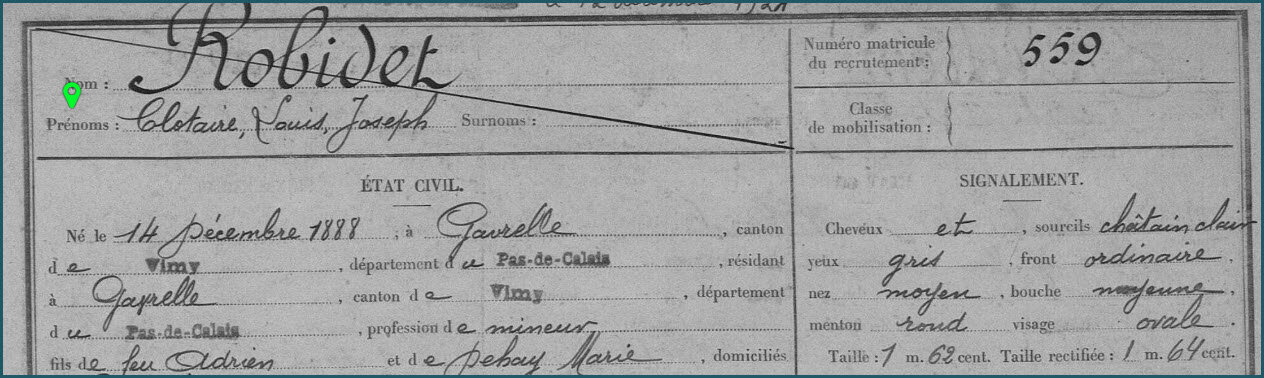 Nom : Robidet
Numéro matricule du recrutement : 559
Prénoms : Clotaire, Louis, Joseph Surnoms :
Classe de mobilisation :
ÉTAT CIVIL.
Né le 14 Décembre 1888, à Gavrelle, canton
de Vimy, département du Pas-de-Calais, résidant
à Gavrelle, canton de Vimy, département
du Pas-de-Calais, profession de mineur
fils de feu Adrien et de Dehay Marie, domiciliés
SIGNALEMENT.
Cheveux et, sourcils châtain clair
yeux gris, front ordinaire,
nez moyen, bouche moyenne,
menton rond visage ovale.
Taille : 1 m. 62 cent. Taille rectifiée : 1 m. 64 cent.